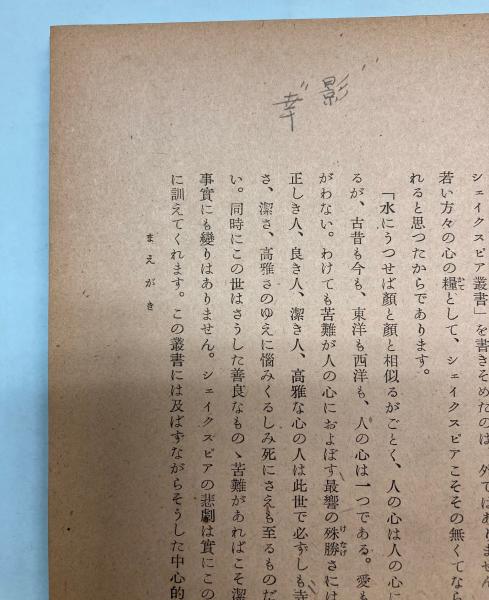 "影"
幸"
シェイクスピア叢書」を書きそめたのは、外ではありません
若い方々の心の糧として、シェイクスピアこそその無くてなら
れると思つたからであります。
「水にうつせば顔と顔と相似るがごとく、人の心は人の心に
るが、古昔も今も、東洋も西洋も、人の心は一つである。愛も
がわない。わけても苦難が人の心におよぼす最響の殊勝さには
正しき人、良き人、潔き人、高雅な心の人は此世で必ずしも寺
さ、潔さ、高雅さのゆえに惱みくるしみ死にさえも至るものだ
い。同時にこの世はさうした善良なものゝ苦難があればこそ潔
事實にも變りはありません。シェイクスピアの悲劇は實にこの
に訓えてくれます。この叢書には及ばずながらそうした中心的
まえがき